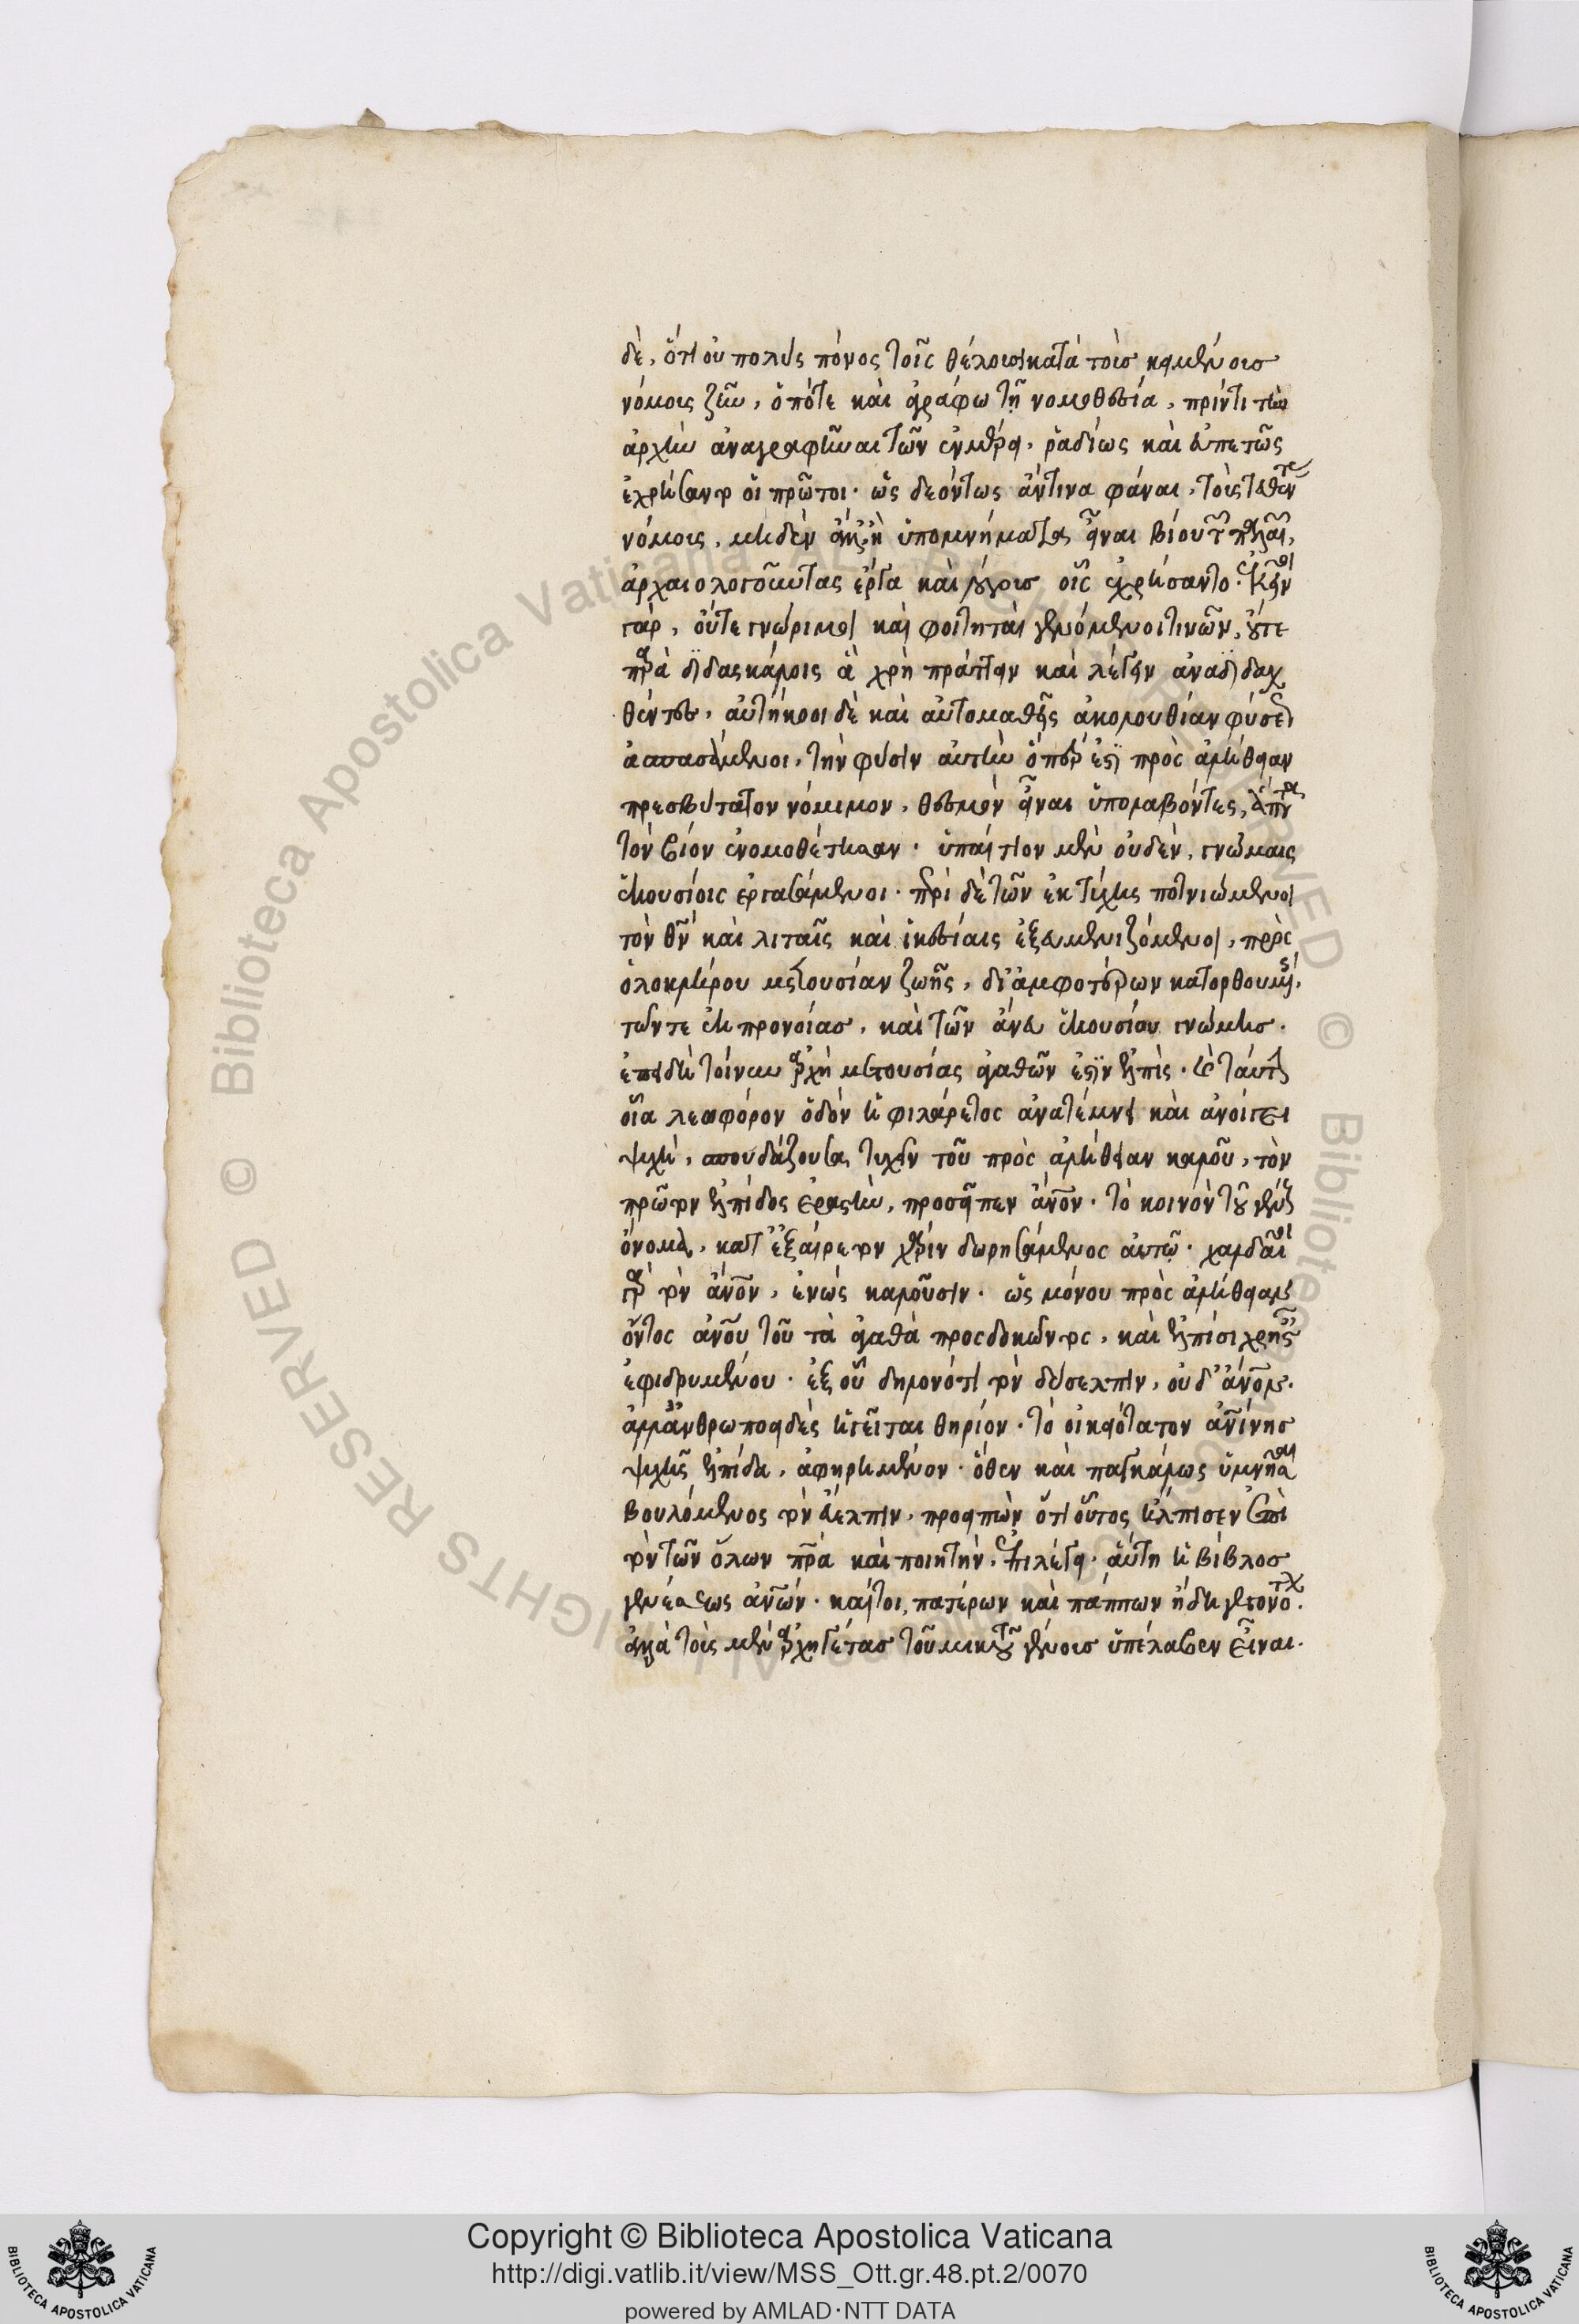 δὲ, ὅτι οὐ πολὺς πόνος τοῖς θέλουσι κατὰ τοὺς κειμένους
νόμους ζῆν, ὁπότε καὶ ἀγράφω τῇ νομοθεσία, πρίν τι τὴν
ἀρχὴν ἀναγραφῆναι τῶν ἐν μέρει, ῥαδίως καὶ εὐπετῶς
ἐχρήσαντο οἱ πρῶτοι. ὡς δεόντως ἄν τινα φάναι, τοὺς τεθέντας
νόμους, μηδὲν ἄλλ' ἢ ὑπομνήματα εἶναι βίου τῶν παλαιῶν,
ἀρχαιολογοῦντας ἔργα καὶ λόγους οἷς ἐχρήσαντο. ἐκεῖνοι
γὰρ, οὔτε γνώριμοι καὶ φοιτηταὶ γενόμενοί τινων, οὔτε
παρὰ διδασκάλοις ἃ χρὴ πράττειν καὶ λέγειν ἀναδιδαχ
θέντες, αὐτήκοοι δὲ καὶ αὐτομαθεῖς ἀκολουθίαν φύσεως
ἀσπασάμενοι, τὴν φύσιν αὐτὴν ὅπερ ἐστὶ πρὸς ἀλήθειαν
πρεσβύτατον νόμιμον, θεσμὸν εἶναι ὑπολαβόντες, ἅπαντα
τὸν βίον ἐνομοθέτησαν. ὑπαίτιον μὲν οὐδὲν, γνώμαις
ἑκουσίοις ἐργασάμενοι. περὶ δὲ τῶν ἐκ τύχης ποτνιώμενοι
τὸν θν καὶ λιταῖς καὶ ἱκεσίαις ἐξευμενιζόμενοι, πρὸς
ὁλοκλήρου μετουσίαν ζωῆς, δι' ἀμφοτέρων κατορθουμένης,
τῶν τε ἐκ προνοίας, καὶ τῶν ἄνευ ἑκουσίου γνώμης.
ἐπειδὴ τοίνυν ἀρχὴ μετουσίας ἀγαθῶν ἐστὶν ἐλπὶς. καὶ ταύτην
οἷα λεωφόρον ὁδὸν ἡ φιλάρετος ἀνατέμνει καὶ ἀνοίγει
ψυχὴ, σπουδάζουσα τυχεῖν τοῦ πρὸς ἀλήθειαν καλοῦ, τὸν
πρῶτον ἐλπίδος ἐραστὴν, προσεῖπεν ἄνον. τὸ κοινὸν τοῦ γένους
ὄνομα, κατ' ἐξαίρετον χάριν δωρησάμενος αὐτῷ. χαλδαῖοι
γὰρ τὸν ἄνον, ἐνὼς καλοῦσιν. ὡς μόνου πρὸς ἀλήθειαν
ὄντος ἀνου τοῦ τὰ ἀγαθὰ προσδοκῶντος, καὶ ἐλπίσι χρησταῖς
ἐφιδρυμένου. ἐξ οὗ δηλονότι τὸν δύσελπιν, οὐδ' ἄνον.
ἀλλ' ἀνθρωποειδὲς ἡγεῖται θηρίον. τὸ οἰκειότατον ἀνίνης
ψυχῆς ἐλπίδα, ἀφηρημένον. ὅθεν καὶ παγκάλως ὑμνῆσαι
βουλόμενος τὸν εὔελπιν, προειπὼν ὅτι οὗτος ἤλπισεν ἐπὶ
τὸν τῶν ὅλων πρα καὶ ποιητὴν, ἐπιλέγει. αὕτη ἡ βίβλος
γενέσεως ἀνων. καίτοι, πατέρων καὶ πάππων ἤδη γεγονότων.
ἀλλὰ τοὺς μὲν ἀρχηγέτας τοῦ μικτοῦ γένους ὑπέλαβεν εἶναι.
Copyright © Biblioteca Apostolica Vaticana
http://digi.vatlib.it/view/MSS_Ott.gr.48.pt.2/0070
powered by AMLAD·NTT DATA